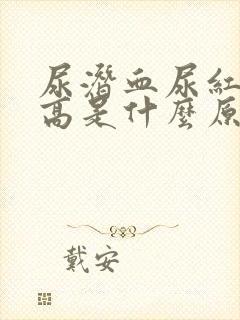 尿潛血尿紅
高是什麼原
戴安